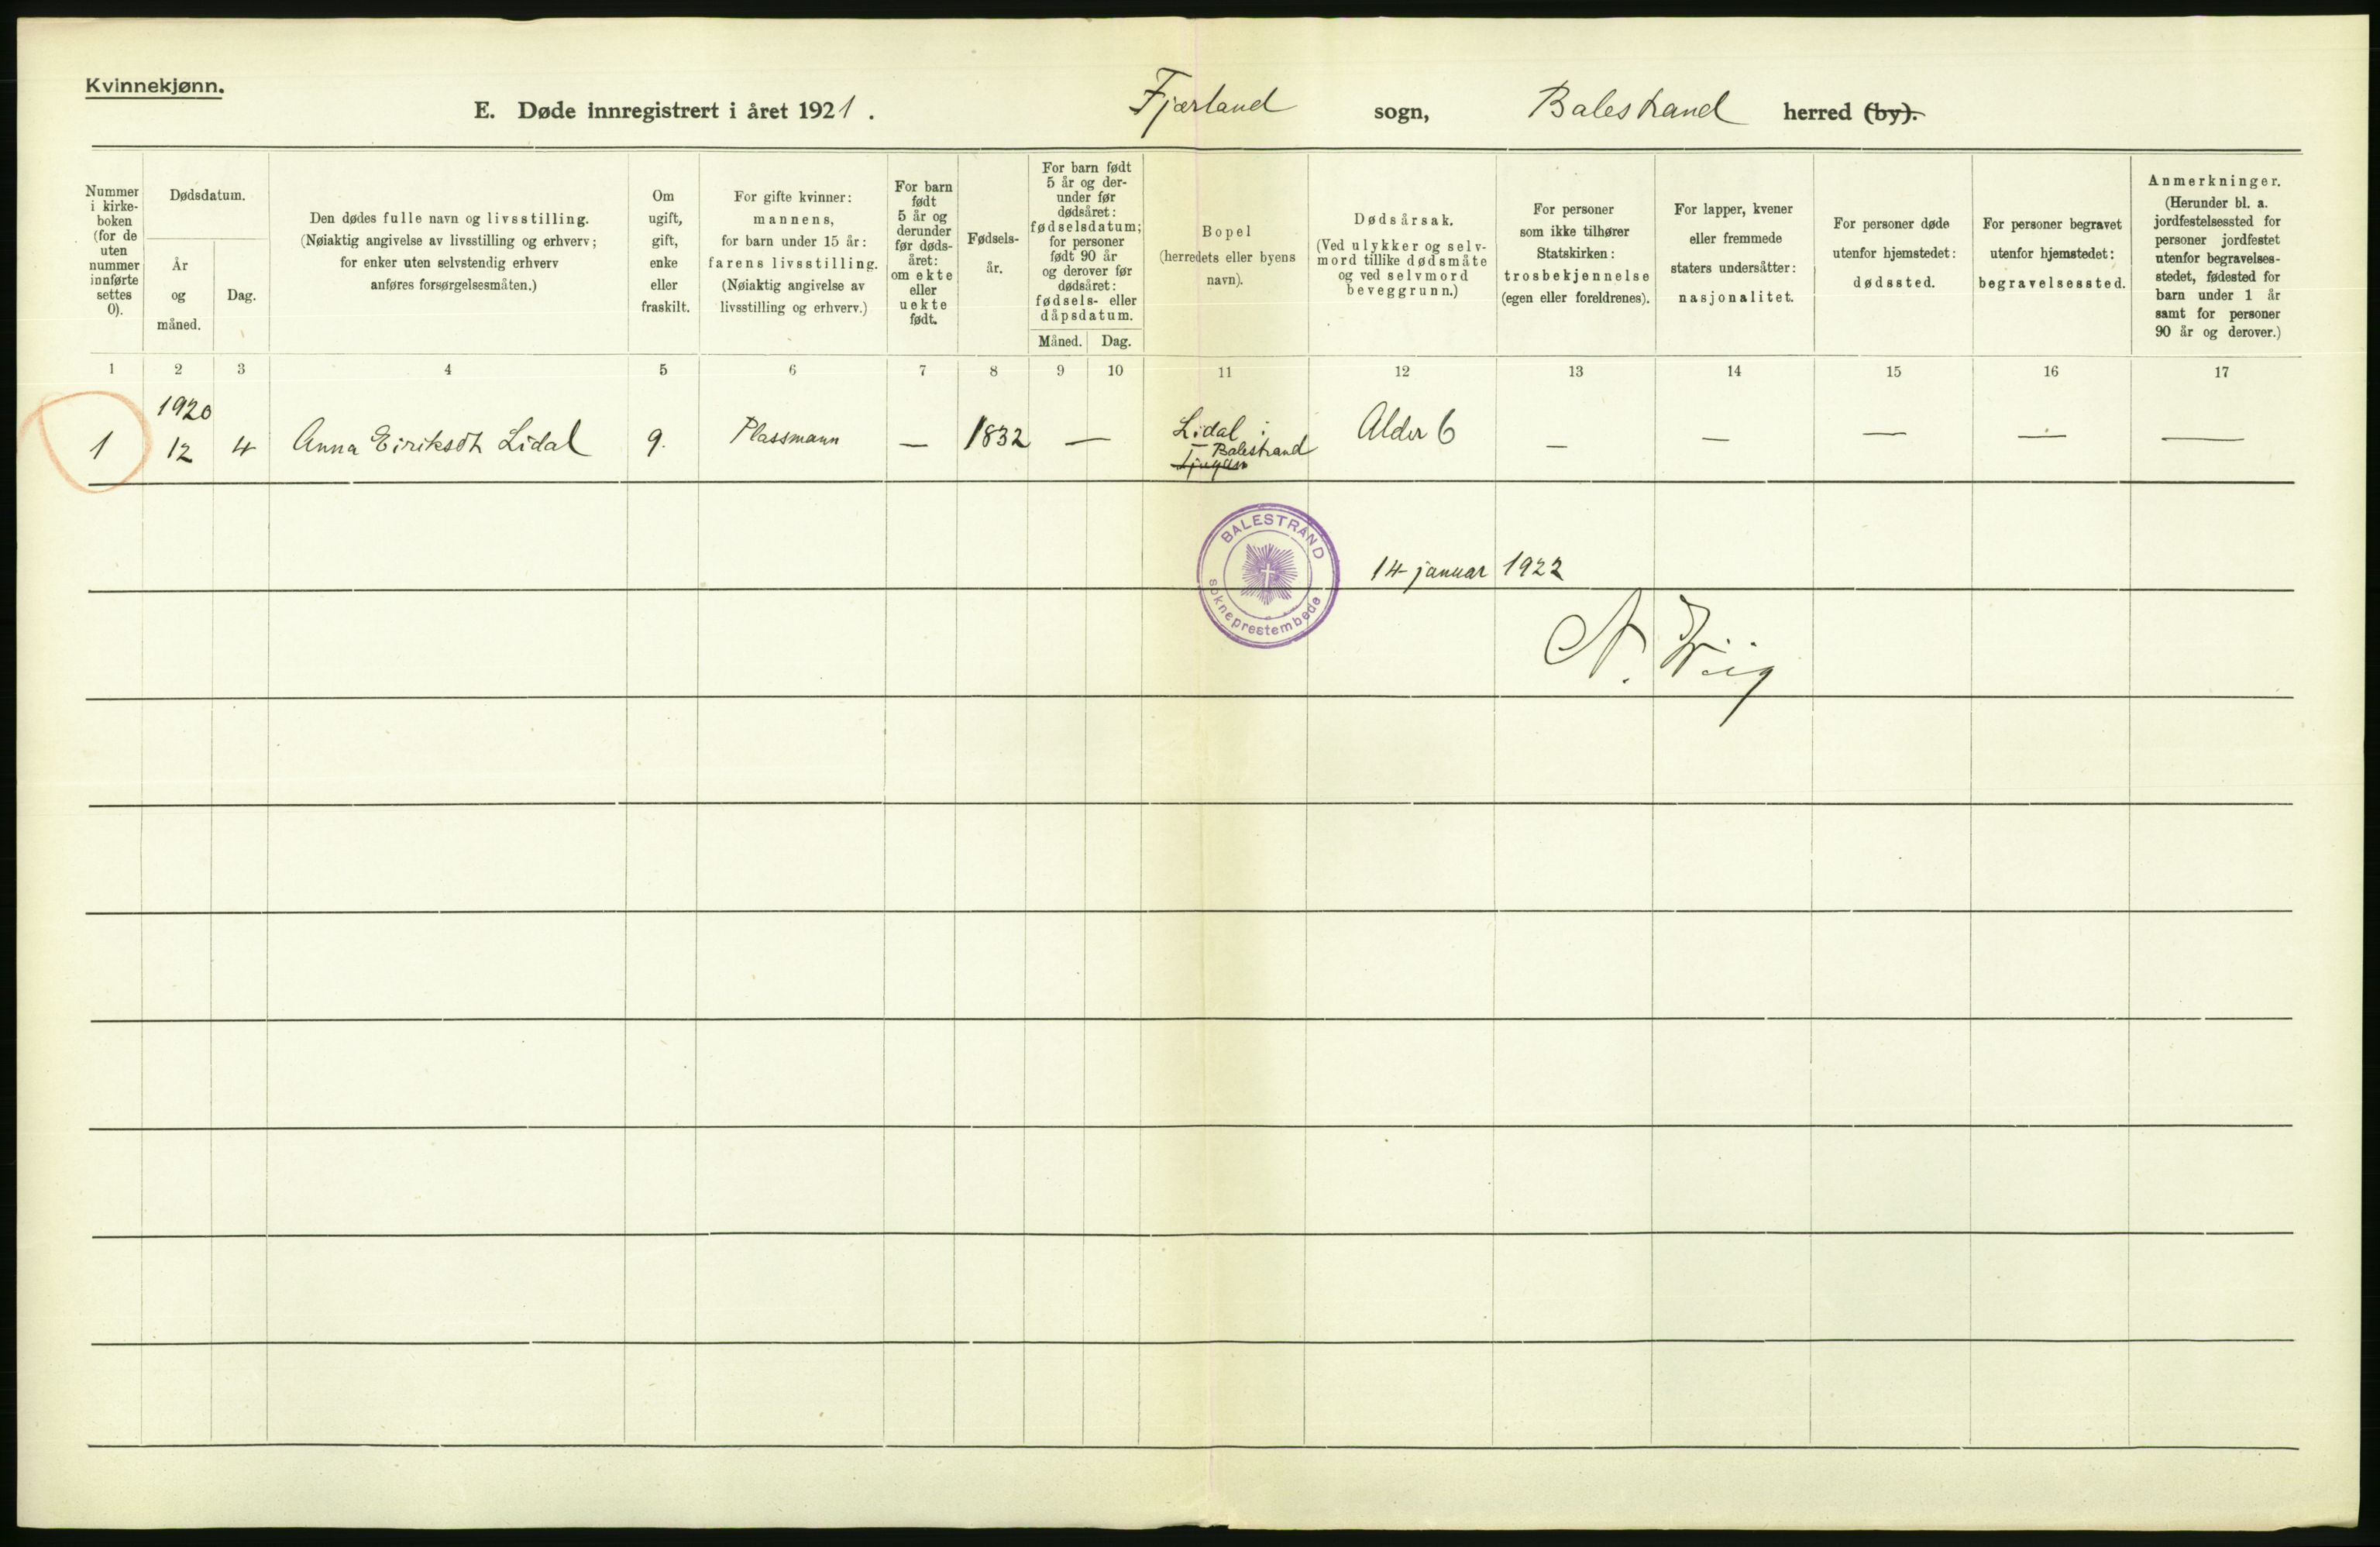 Kvinnekjønn.
E. Døde innregistrert i året 1921. Fjærland sogn, Balestrand herred (by).
Nummer
i kirke-
boken
(for de
uten
nummer
innførte
settes
0).
Dødsdatum.
År
og
måned.
Dag.
Den dødes fulle navn og livsstilling.
(Nøiaktig angivelse av livsstilling og erhverv;
for enker uten selvstendig erhverv
anføres forsørgelsesmåten.)
Om
ugift,
gift,
enke
eller
fraskilt.
For gifte kvinner:
mannens,
for barn under 15 år:
farens livsstilling.
(Nøiaktig angivelse av
livsstilling og erhverv.)
For barn
født
5 år og
derunder
før døds-
året:
om ekte
eller
uekte
født.
Fødsels-
år.
For barn født
5 år og der-
under før
dødsåret:
fødselsdatum;
for personer
født 90 år
og derover før
dødsåret:
fødsels- eller
dåpsdatum.
Måned. Dag.
Bopel
(herredets eller byens
navn).
Dødsårsak.
(Ved ulykker og selv-
mord tillike dødsmåte
og ved selvmord
beveggrunn.)
For personer
som ikke tilhører
Statskirken:
trosbekjennelse
(egen eller foreldrenes).
For lapper, kvener
eller fremmede
staters undersåtter:
nasjonalitet.
For personer døde
utenfor hjemstedet:
dødssted.
For personer begravet
utenfor hjemstedet:
begravelsessted.
Anmerkninger.
(Herunder bl. a.
jordfestelsessted for
personer jordfestet
utenfor begravelses-
stedet, fødested for
barn under 1 år
samt for personer
90 år og derover.)
1 2 3 4 5 6 7 8 9 10 11 12 13 14 15 16 17
1920
1 12 4 Anna Eiriksdt Lidal g. Plassmann — 1832 — Lidal i Alder 6 — — — — —
Balestrand
BALESTRAND
sokneprestembede
14 januar 1922
N. Wiig